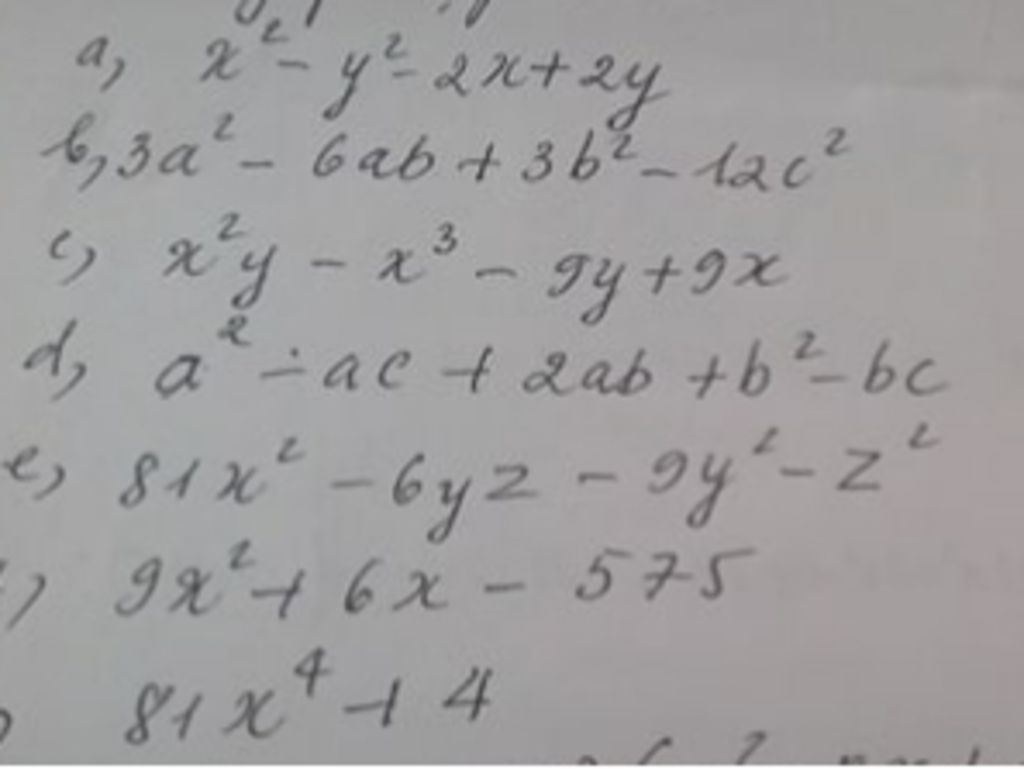 a, x² - y² - 2x + 2y
b, 3a² - 6ab + 3b² - 12c²
c, x²y - x³ - 9y + 9x
d, a² - ac + 2ab + b² - bc
e, 81x² - 6yz - 9y² - z²
) 9x² + 6x - 575
81x⁴ + 4